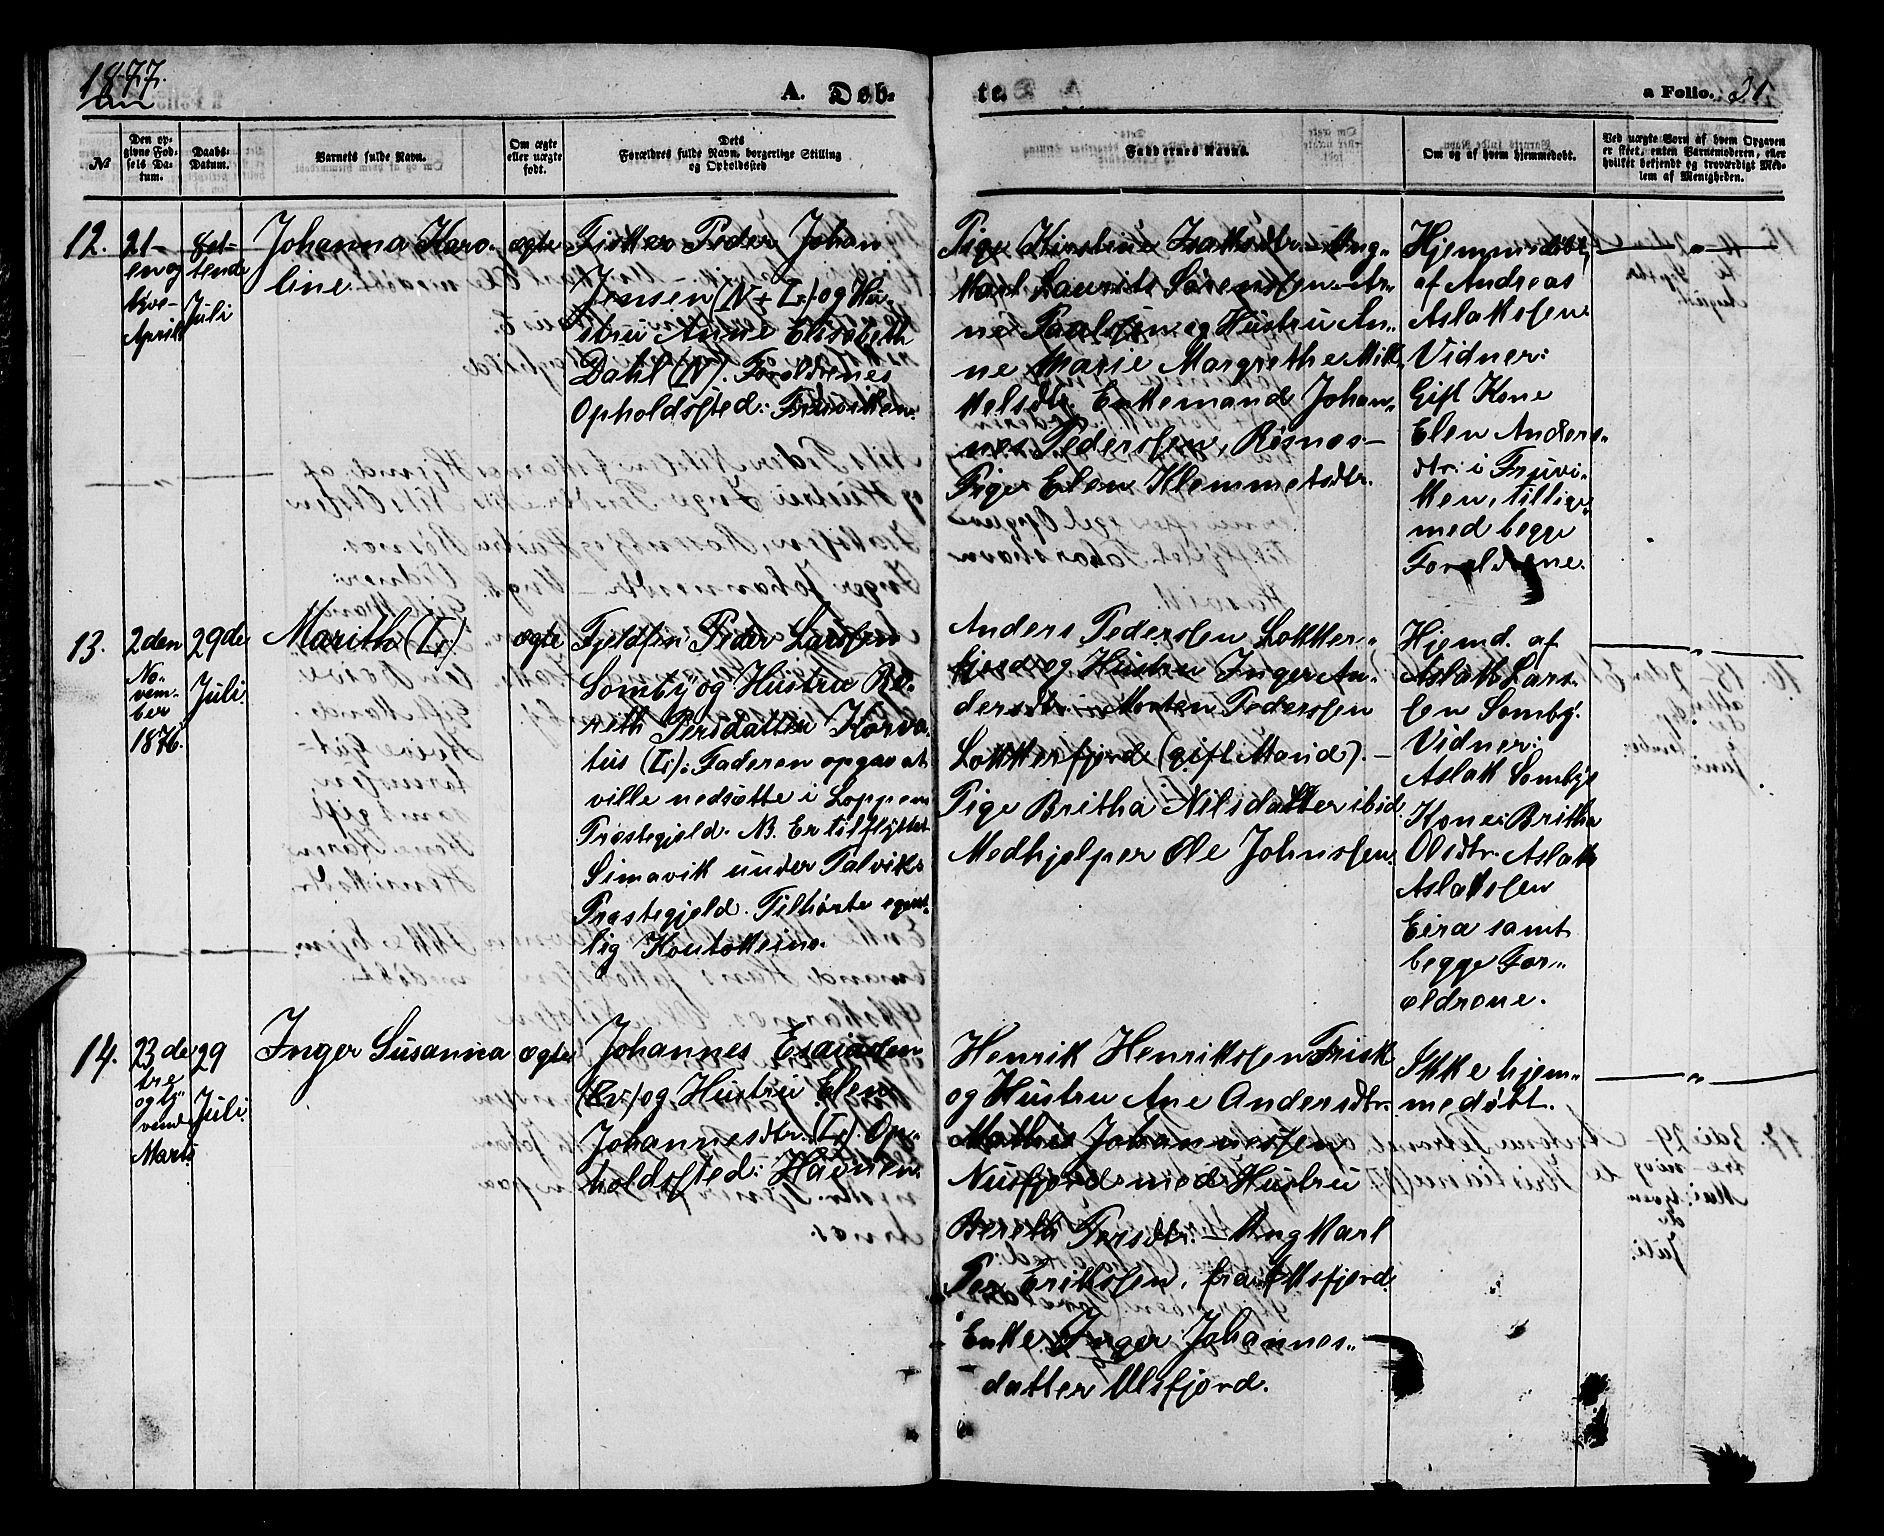 1877.
A. Døb-
te.
a Folio. 31
№
Den op-
givne Fød-
sels Da-
tum.
Daabs-
Datum.
Barnets fulde Navn.
Om ægte
eller uægte
født.
Dets
Forældres fulde Navn, borgerlige Stilling
og Opholdssted
Faddernes Navne.
Om og af hvem hjemmedøbt.
Ved uægte Børn af hvem Opgaven
er skeet, enten Barnemoderen, eller
hvilket bekjendt og troværdigt Med-
lem af Menigheden.
12.
21-
en og
tyve-
April
8et-
tende
Juli
Johanna Karo-
line
ægte
Fisker Peder Johan
Jensen (N + L) og Hu-
stru Anne Elisabeth
Dahl (N). Forældrenes
Opholdssted: Fruviken.
Pige Kirstine Isaksdtr. - Ung-
karl Laurits Sørensen - Ar-
ne Paulsen og Hustru An-
ne Marie Margrethe Mik-
kelsdtr. Enkemand Johan-
nes Pedersen, Risnes -
Pige Elen Klemmetsdtr.
Hjemmedøbt
af Andreas
Aslaksen
Vidner:
Gift Kone
Elen Anders-
dtr. i Fruvi-
ken, tillige
med begge
Forældrene.
"
13.
2den
No-
vem-
ber
1876
29de
Juli
Marith (L)
ægte
Fjeldfin Peder Larsen
Somby og Hustru Be-
reth Persdatter Korva-
tus (L): Faderen opgav at
ville nedsætte i Loppen
Præstegjeld. NB. Er tilflyttet
Simavik under Talviks
Præstegjeld. Tilhørte egent-
lig Koutokeino.
Anders Pedersen Lokker-
fjord og Hustru Inger An-
dersdtr. - Morten Pedersen
Lokkerfjord (gift Mand). -
Pige Britha Nilsdatter ibid
Medhjelper Ole Johnsen.
Hjemd. af
Aslak Lars-
sen Somby.
Vidner:
Aslak Sombys
Kone: Britha
Olsdtr. Aslak
Aslaksen
Eira samt
begge For-
ældrene.
14.
23de
tre
og ty-
vende
Marts
29
Juli
Inger Susanna
ægte
Johannes Esaiasen
(Kv) og Hustru Elen
Johannesdtr. (L). Op-
holdssted: Havnen
Henrik Henriksen Frisk
og Hustru Ane Andersdtr.
Mathis Johannessen
Nusfjord med Hustru
Bereth Persdtr. - Ungkarl
Per Eriksen, fra Leksfjord
Enke Inger Johannes-
datter Ulsfjord.
Ikke hjem-
medøbt.
"